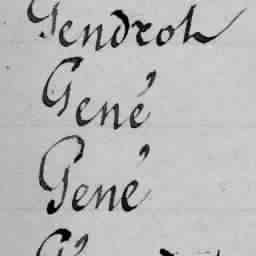 Gendroh
Gené
Gené